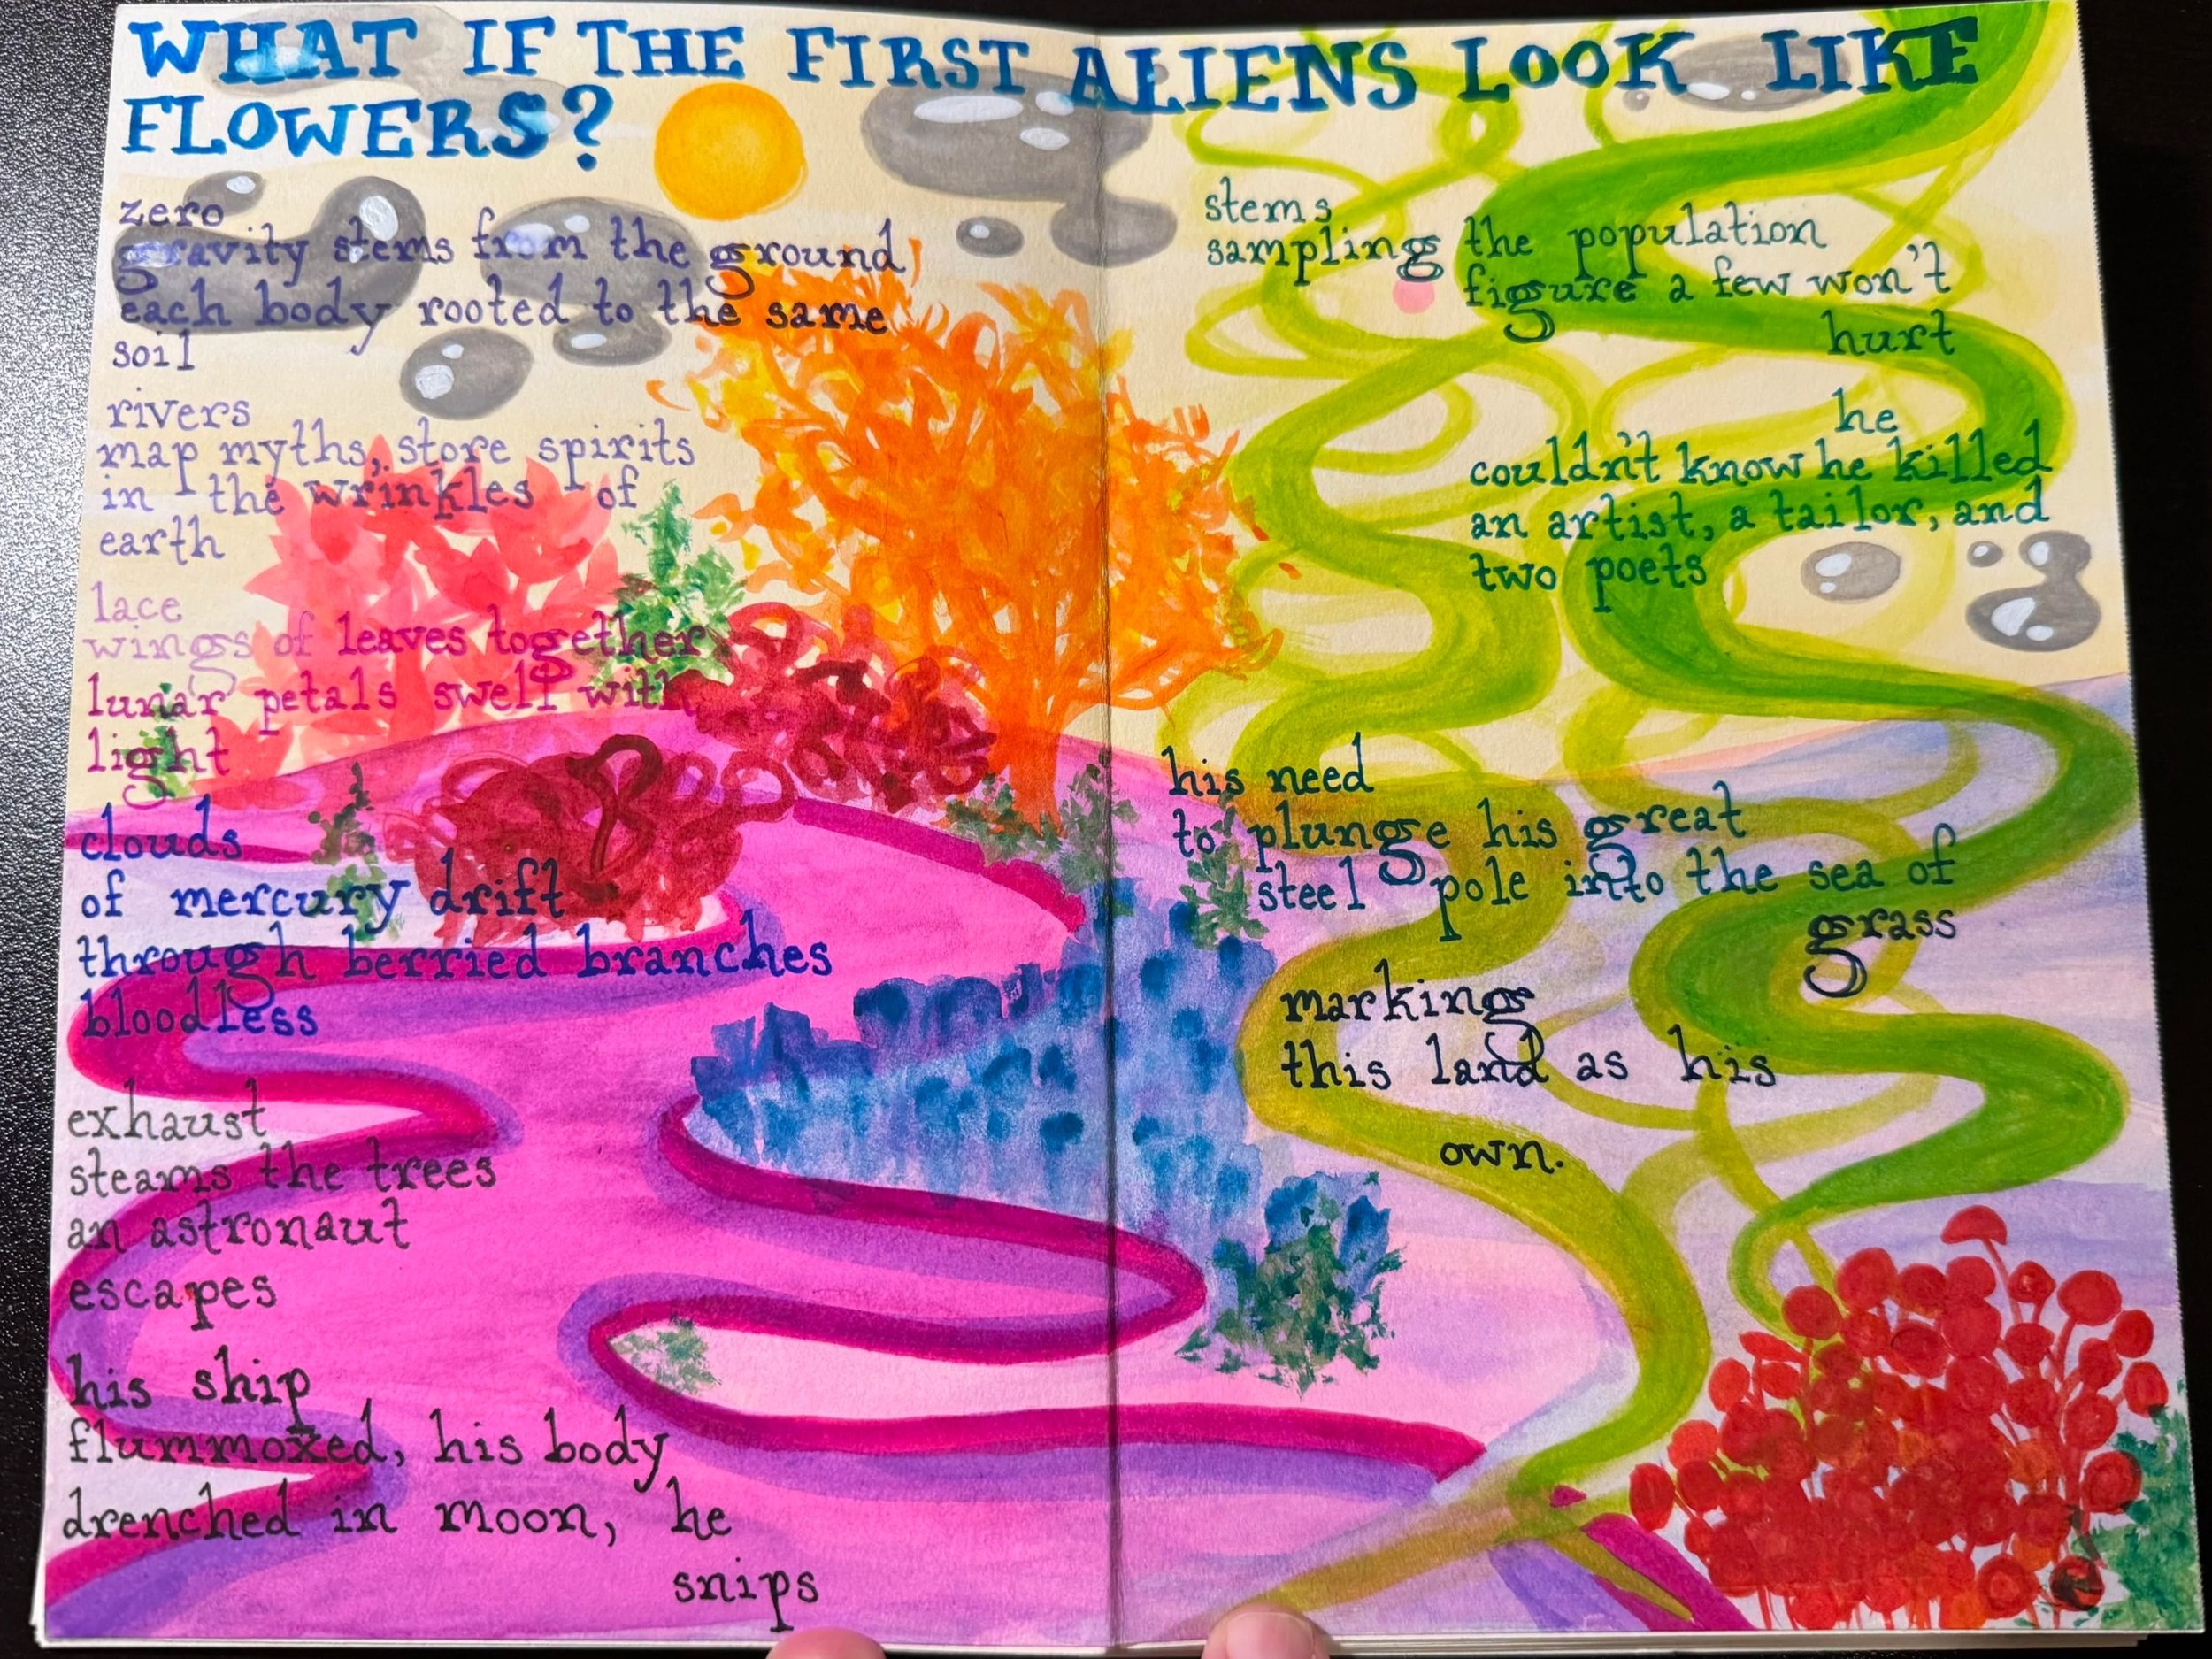 WHAT IF THE FIRST ALIENS LOOK LIKE
FLOWERS?
zero
gravity stems from the ground
each body rooted to the same
soil
rivers
map myths, store spirits
in the wrinkles of
earth
lace
wings of leaves together
lunar petals swell with
light
clouds
of mercury drift
through berried branches
bloodless
exhaust
steams the trees
an astronaut
escapes
his ship
flummoxed, his body
drenched in moon, he
snips
stems
sampling the population
figure a few won't
hurt
he
couldn't know he killed
an artist, a tailor, and
two poets
his need
to plunge his great
steel pole into the sea of
grass
marking
this land as his
own.